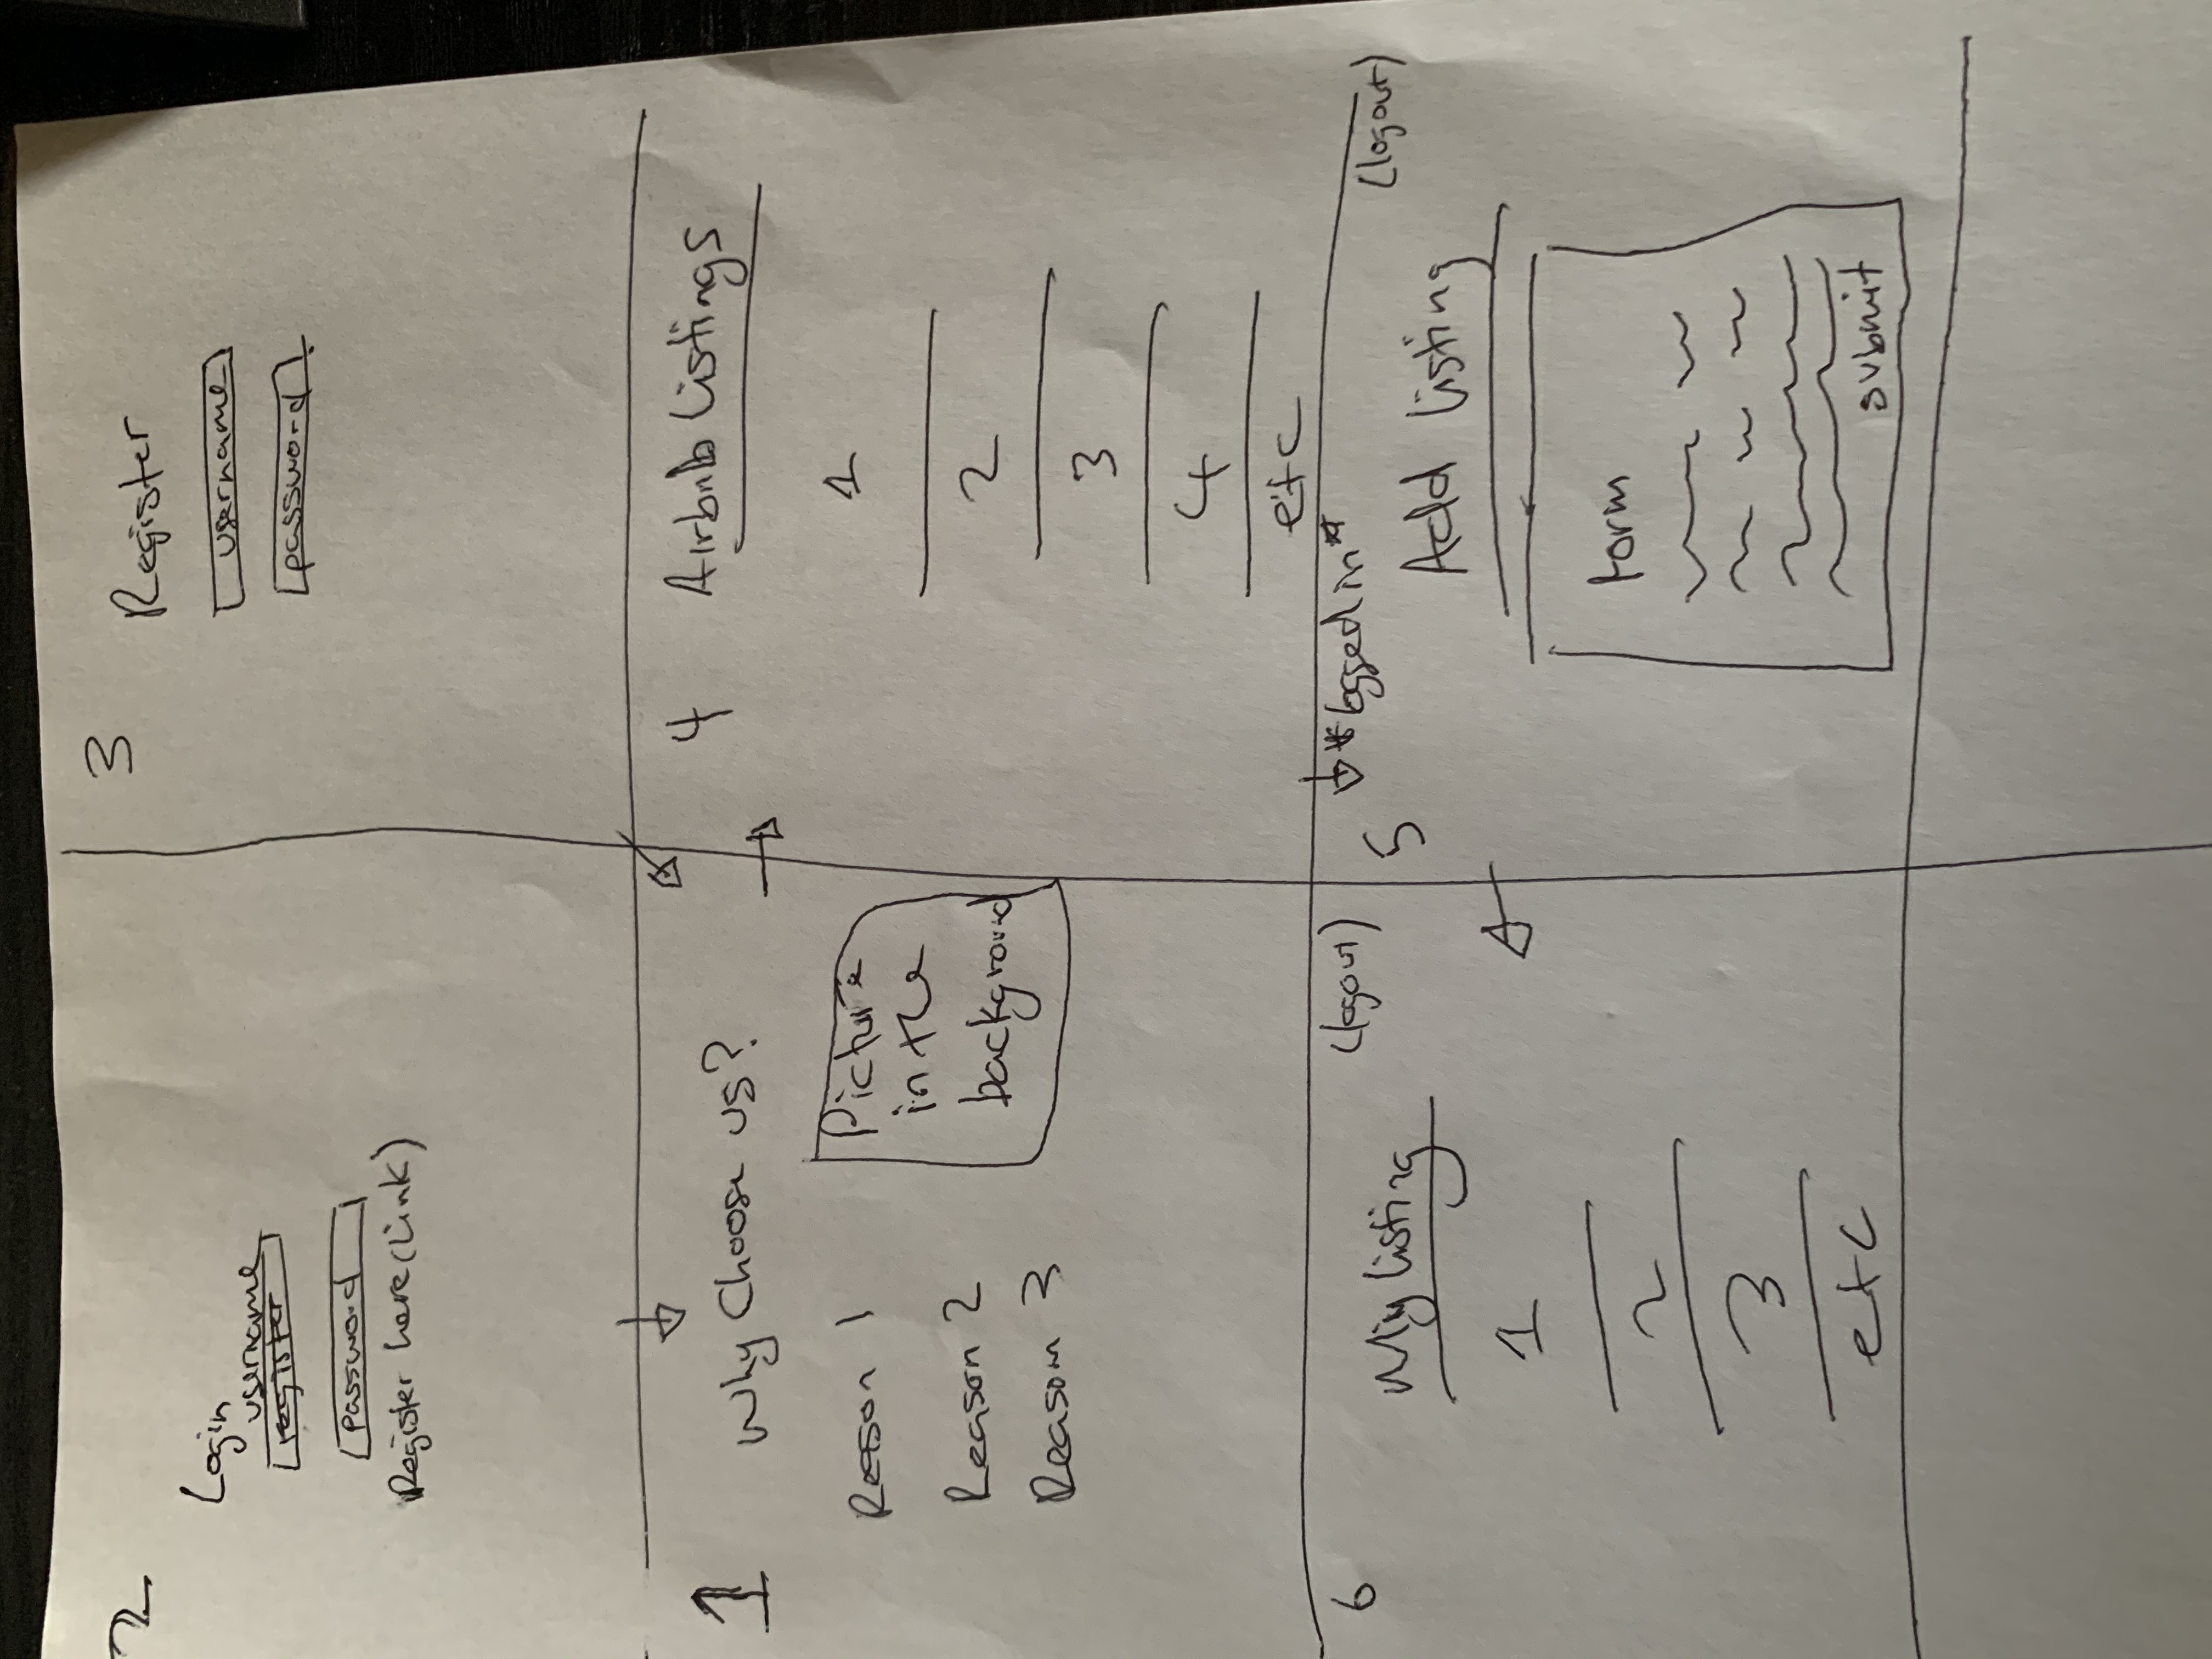 2
Login
username
register
password
Register here (Link)
3
Register
username
password
1
Why Choose us?
Reason 1
Reason 2
Reason 3
Picture
in the
background
4
Airbnb Listings
1
2
3
4
etc
6
(logout)
My listing
1
2
3
etc
*logged in*
5
(logout)
Add listing
form
submit